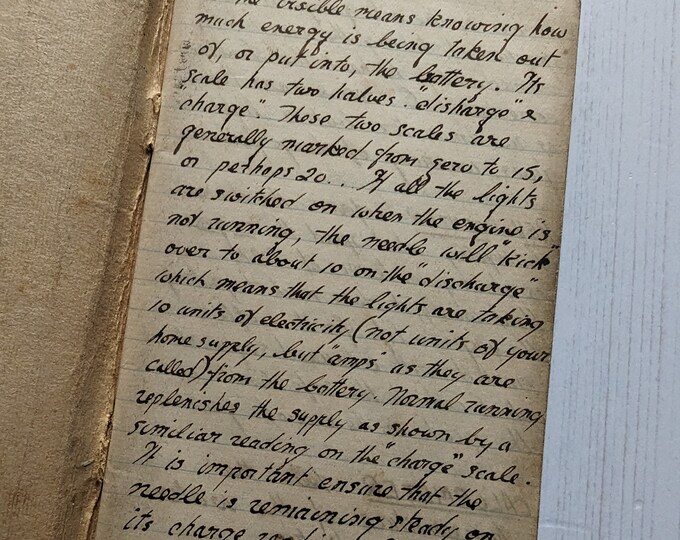 the visible means knowing how
much energy is being taken out
of, or put into, the battery. Its
scale has two halves. "disharge" &
"charge". These two scales are
generally marked from zero to 15,
or perhaps 20.. If all the lights
are switched on when the engine is
not running, the needle will "kick"
over to about 10 on the "discharge"
which means that the lights are taking
10 units of electricity, (not units of your
home supply, but "amps" as they are
called) from the battery. Normal running
replenishes the supply as shown by a
similiar reading on the "charge" scale.
It is important ensure that the
needle is remaining steady on
its charge